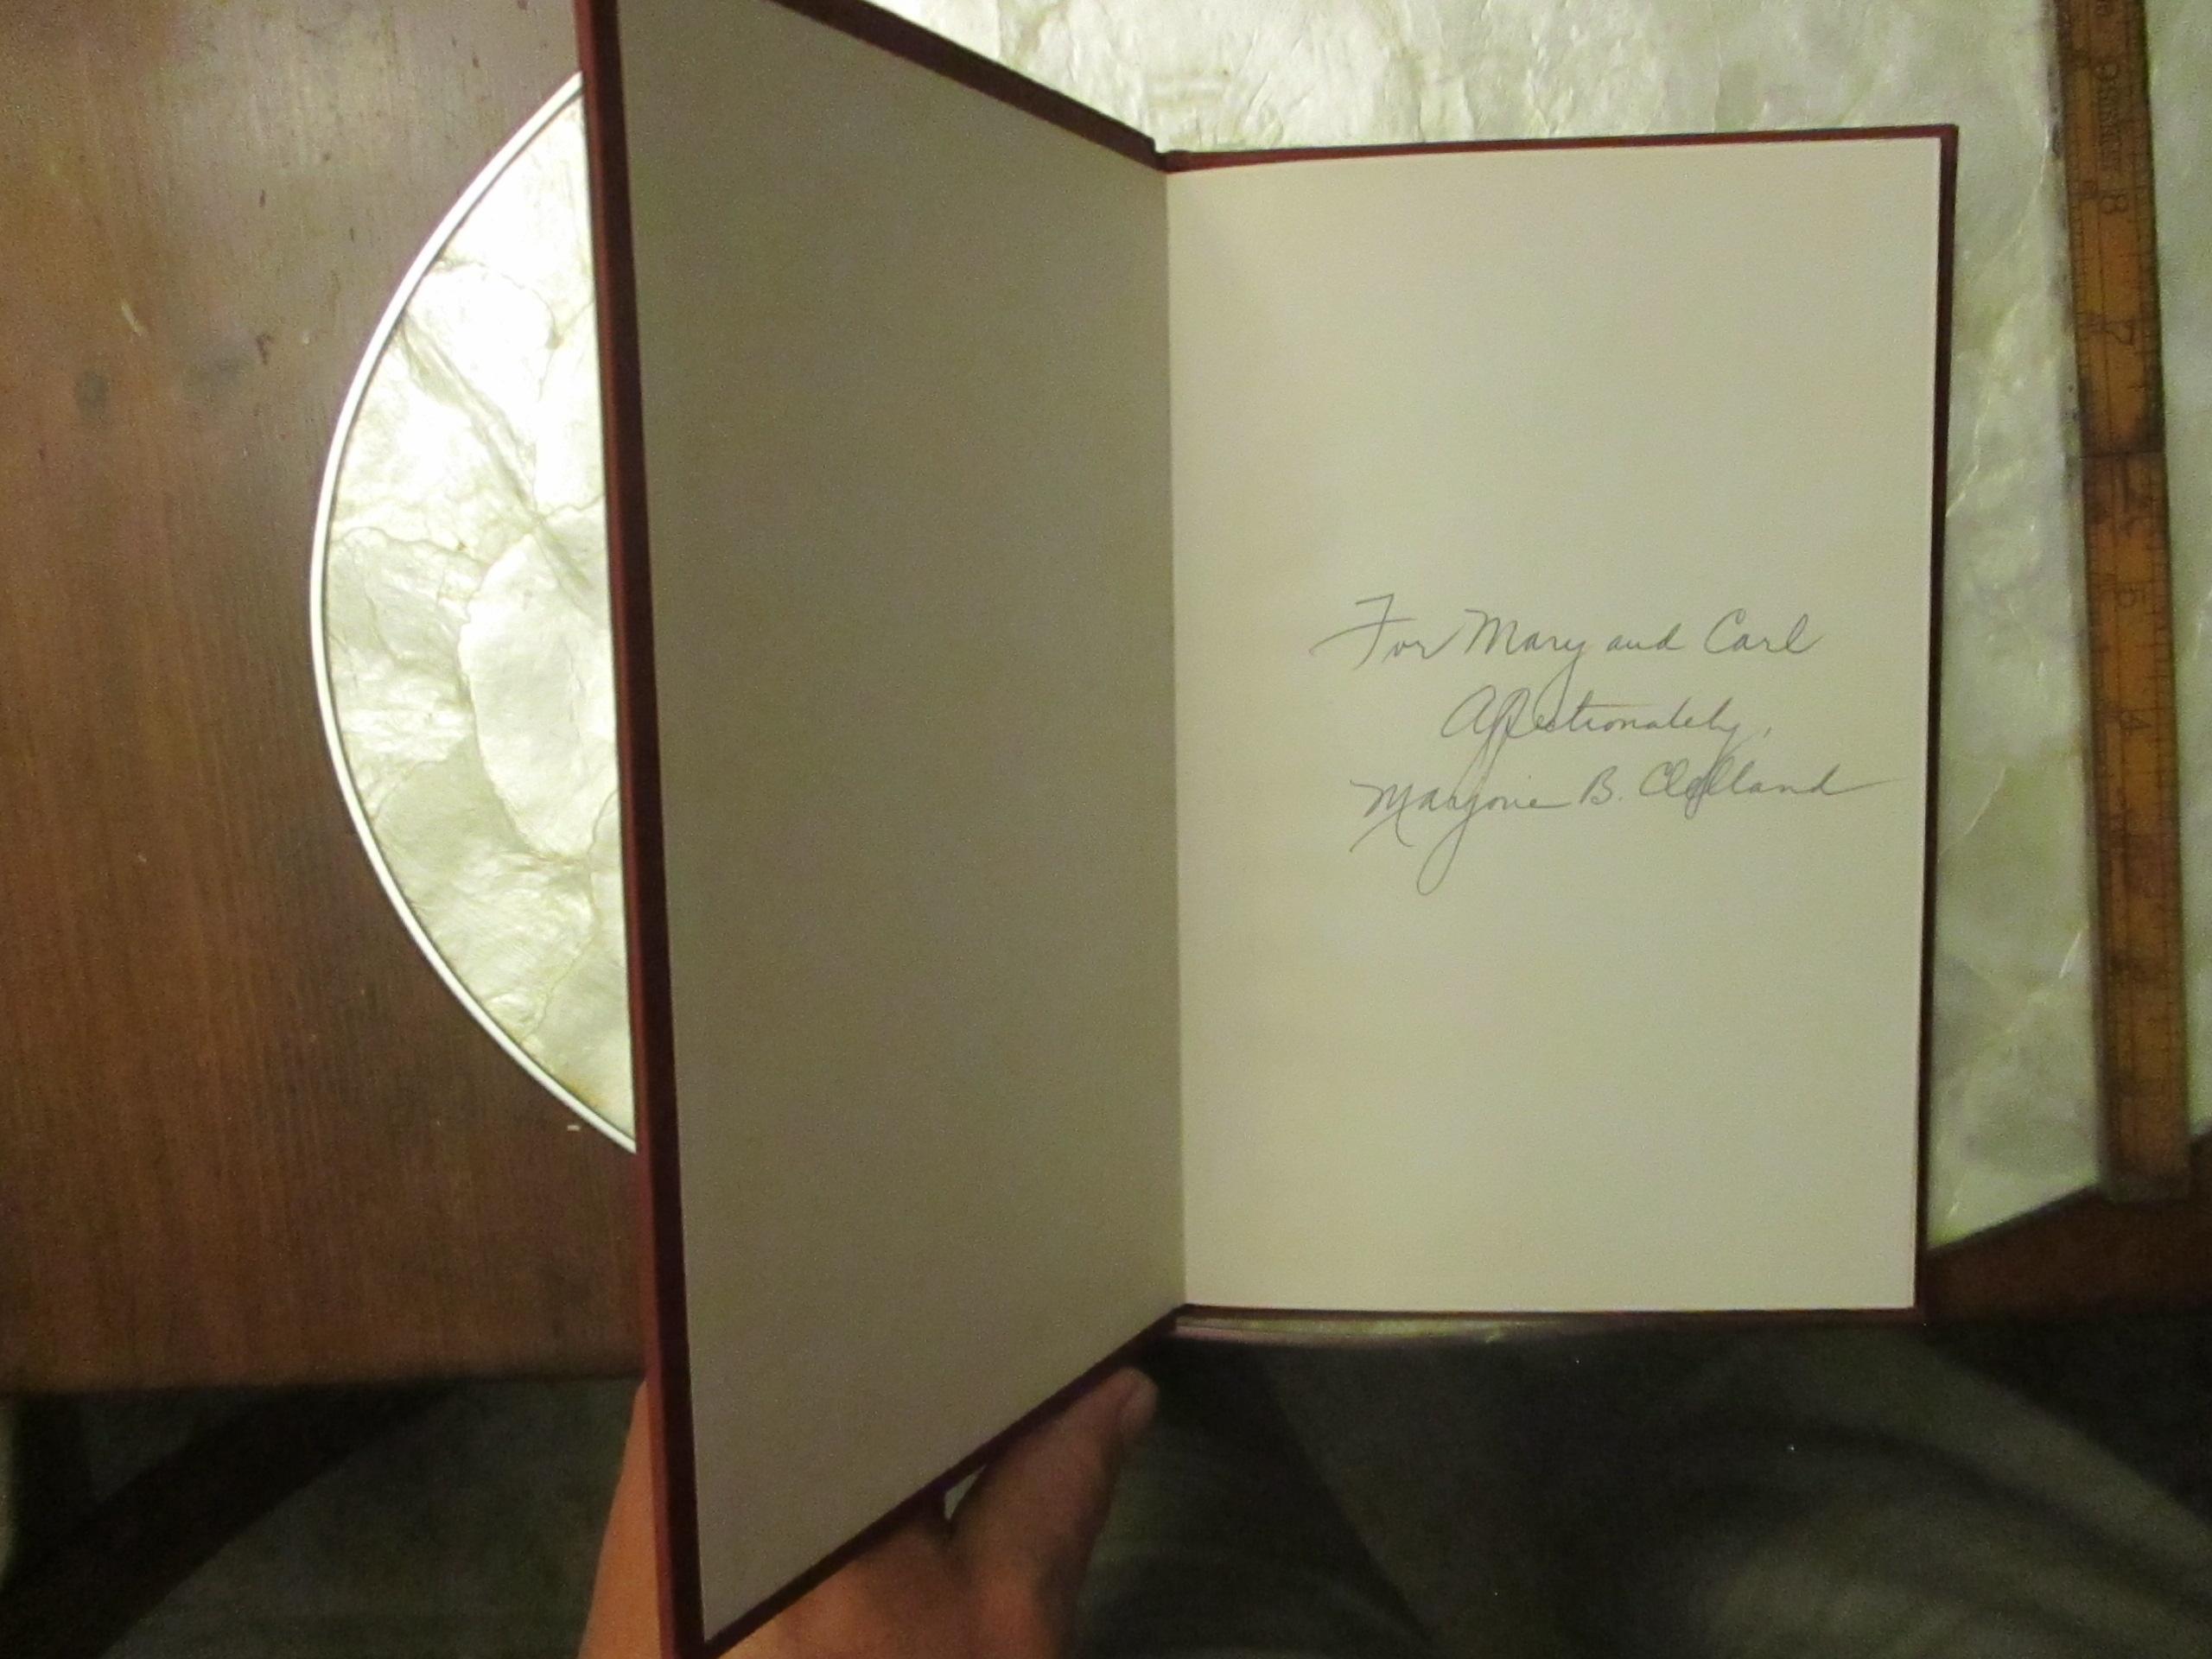 For Mary and Carl
Affectionately,
Marjorie B. Clelland
9
8
7
5
4